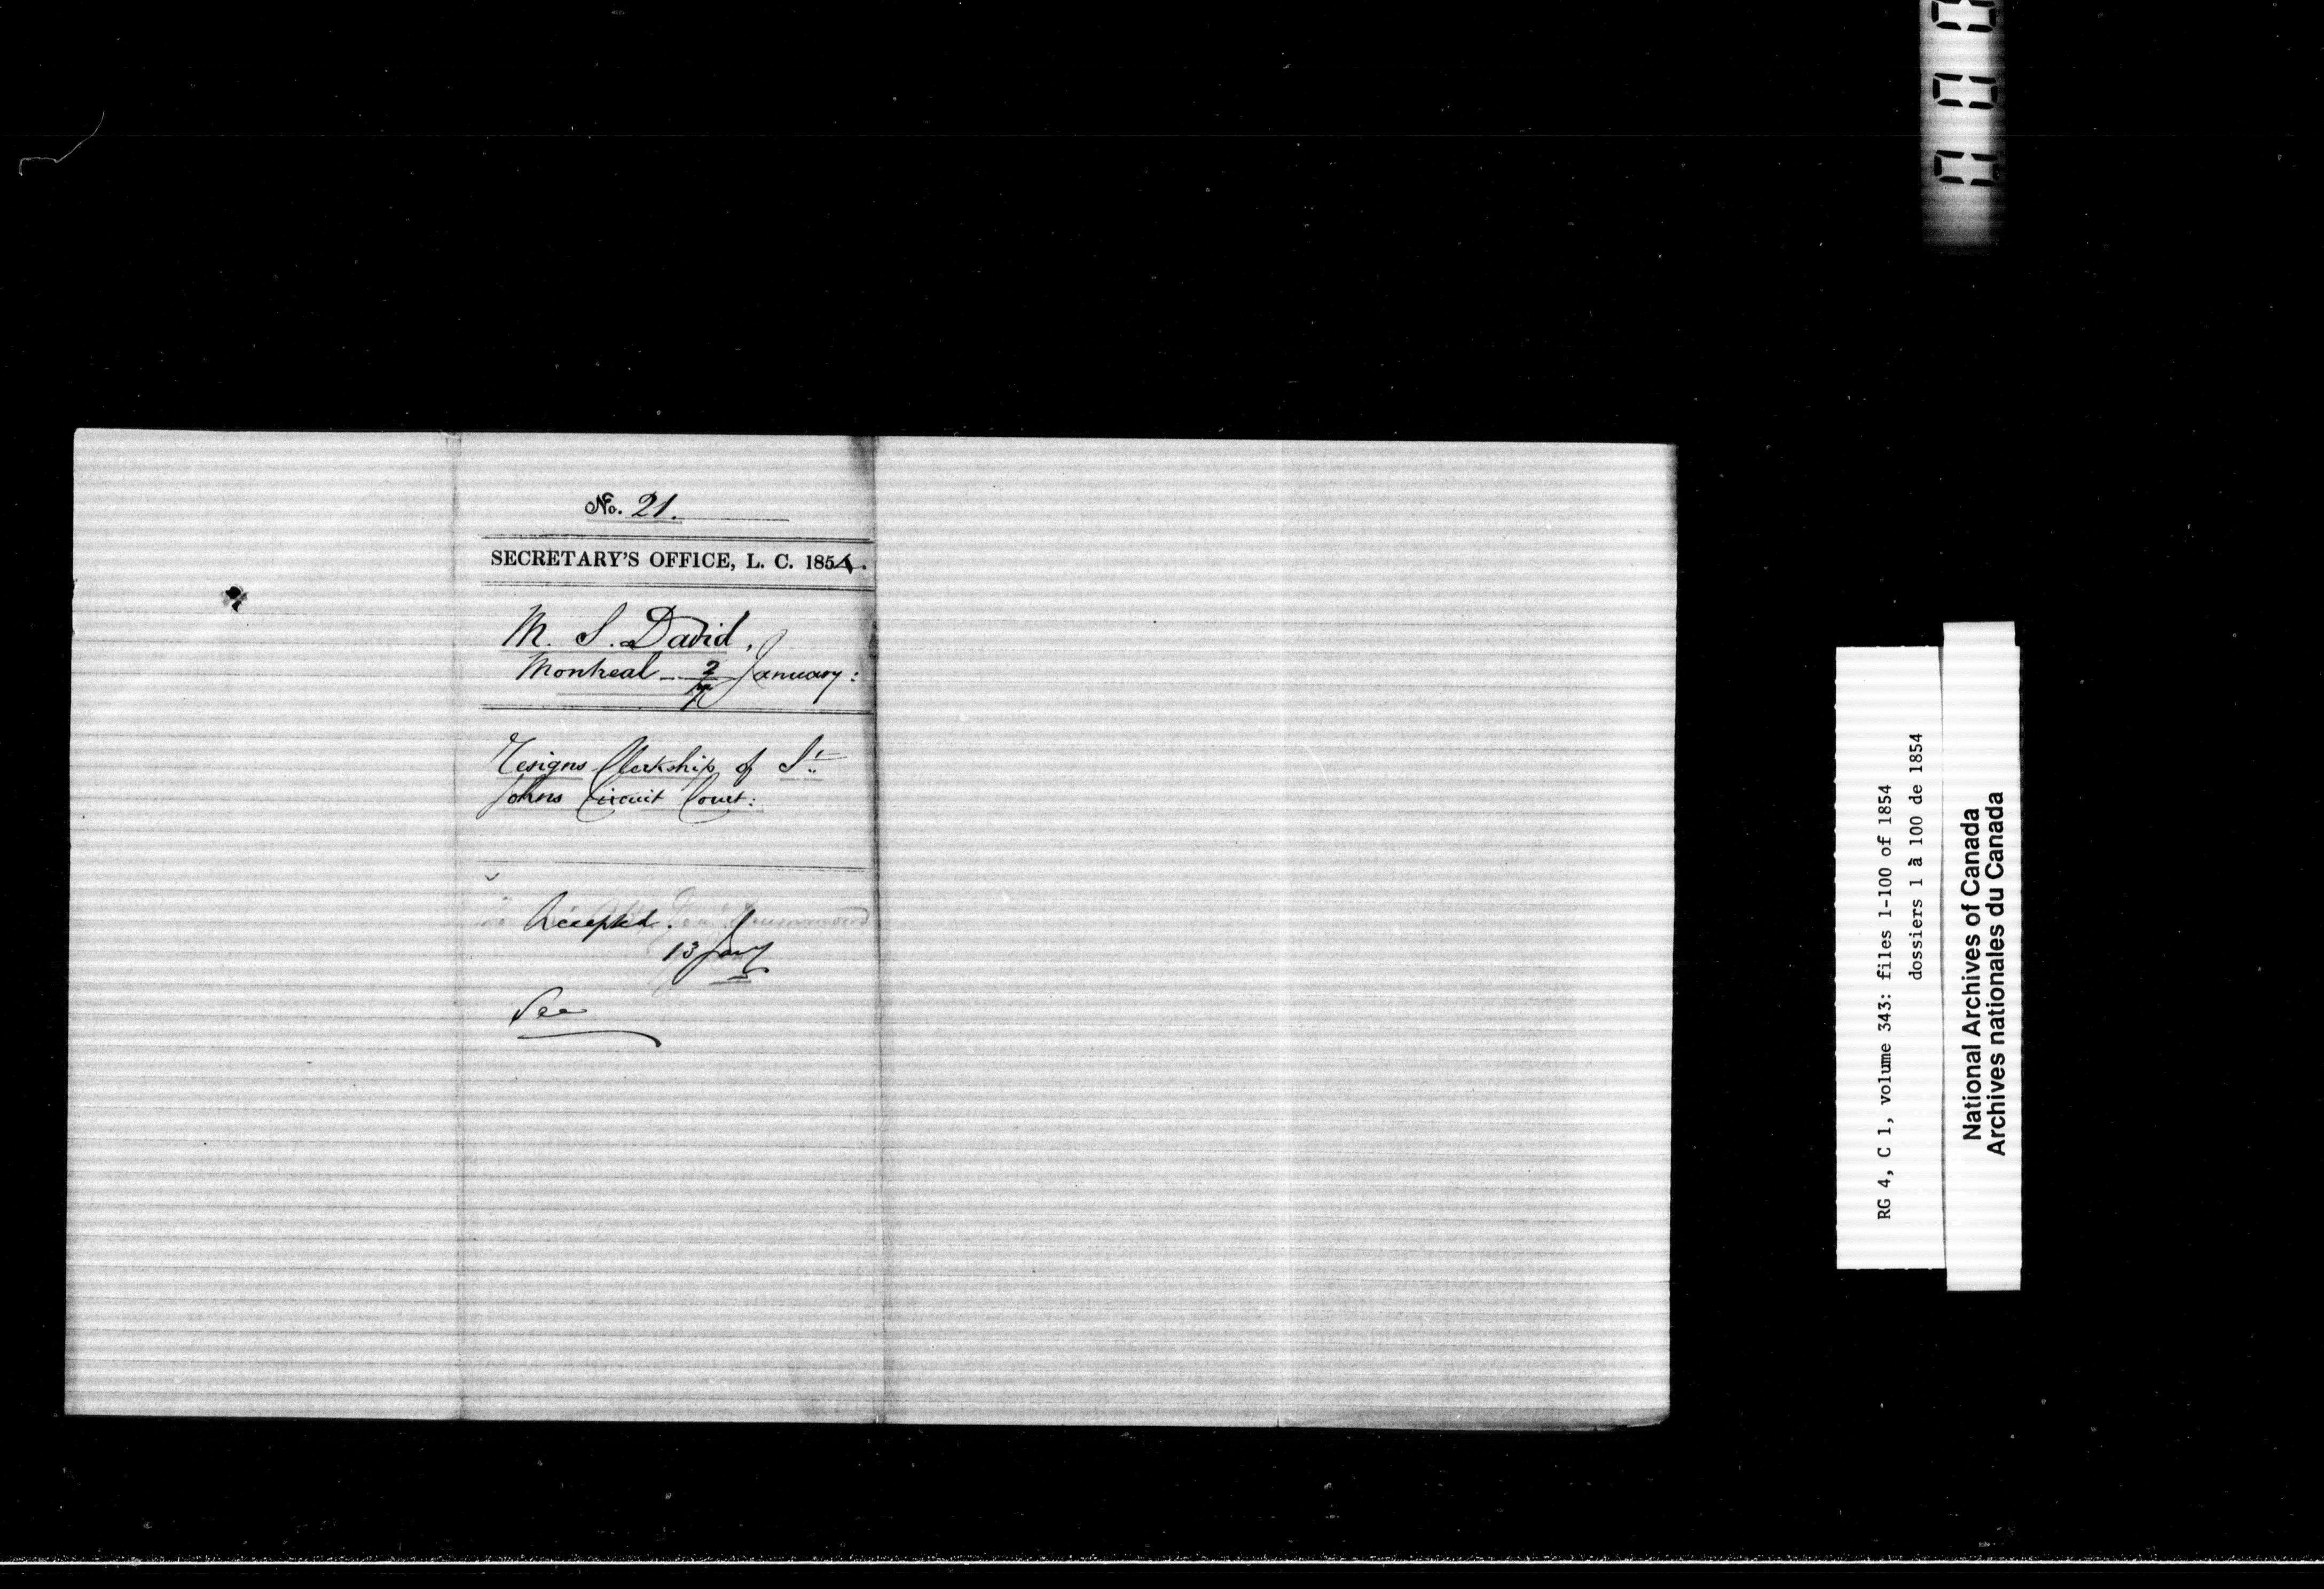 No. 21.
SECRETARY'S OFFICE, L. C. 1854.
M. S. David,
Montreal - 2 January:
Resigns Clerkship of St
Johns Circuit Court:
Accepted. Drummond
13 Jany
RG 4, C 1, volume 343: files 1-100 of 1854
dossiers 1 à 100 de 1854
National Archives of Canada
Archives nationales du Canada